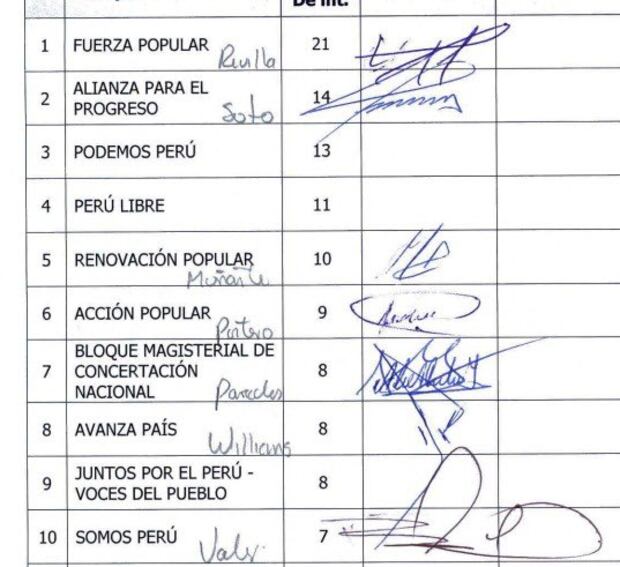 De int.
1 FUERZA POPULAR 21
Revilla
2 ALIANZA PARA EL
PROGRESO 14
Soto
3 PODEMOS PERÚ 13
4 PERÚ LIBRE 11
5 RENOVACIÓN POPULAR 10
Muñante
6 ACCIÓN POPULAR 9
Portero
7 BLOQUE MAGISTERIAL DE
CONCERTACIÓN
NACIONAL 8
Paredes
8 AVANZA PAÍS 8
Williams
9 JUNTOS POR EL PERÚ -
VOCES DEL PUEBLO 8
10 SOMOS PERÚ 7